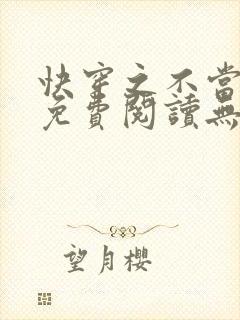 快穿之不當
免費閱讀無
望月櫻